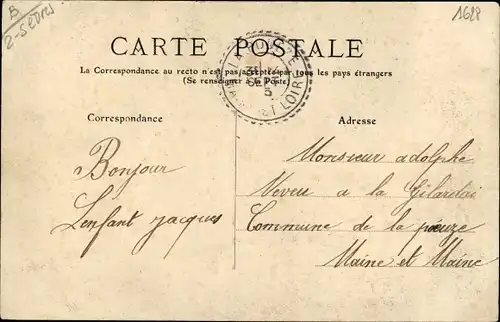 B
2-Sèvres
1628
CARTE POSTALE
La Correspondance au recto n'est pas acceptée par tous les pays étrangers
(Se renseigner à la Poste)
Correspondance
Adresse
Bonjour
L'enfant jacques
Monsieur adolphe
Neveu a la
Commune de la pouëze
Maine et Maine
SEPT
5
LOIRE